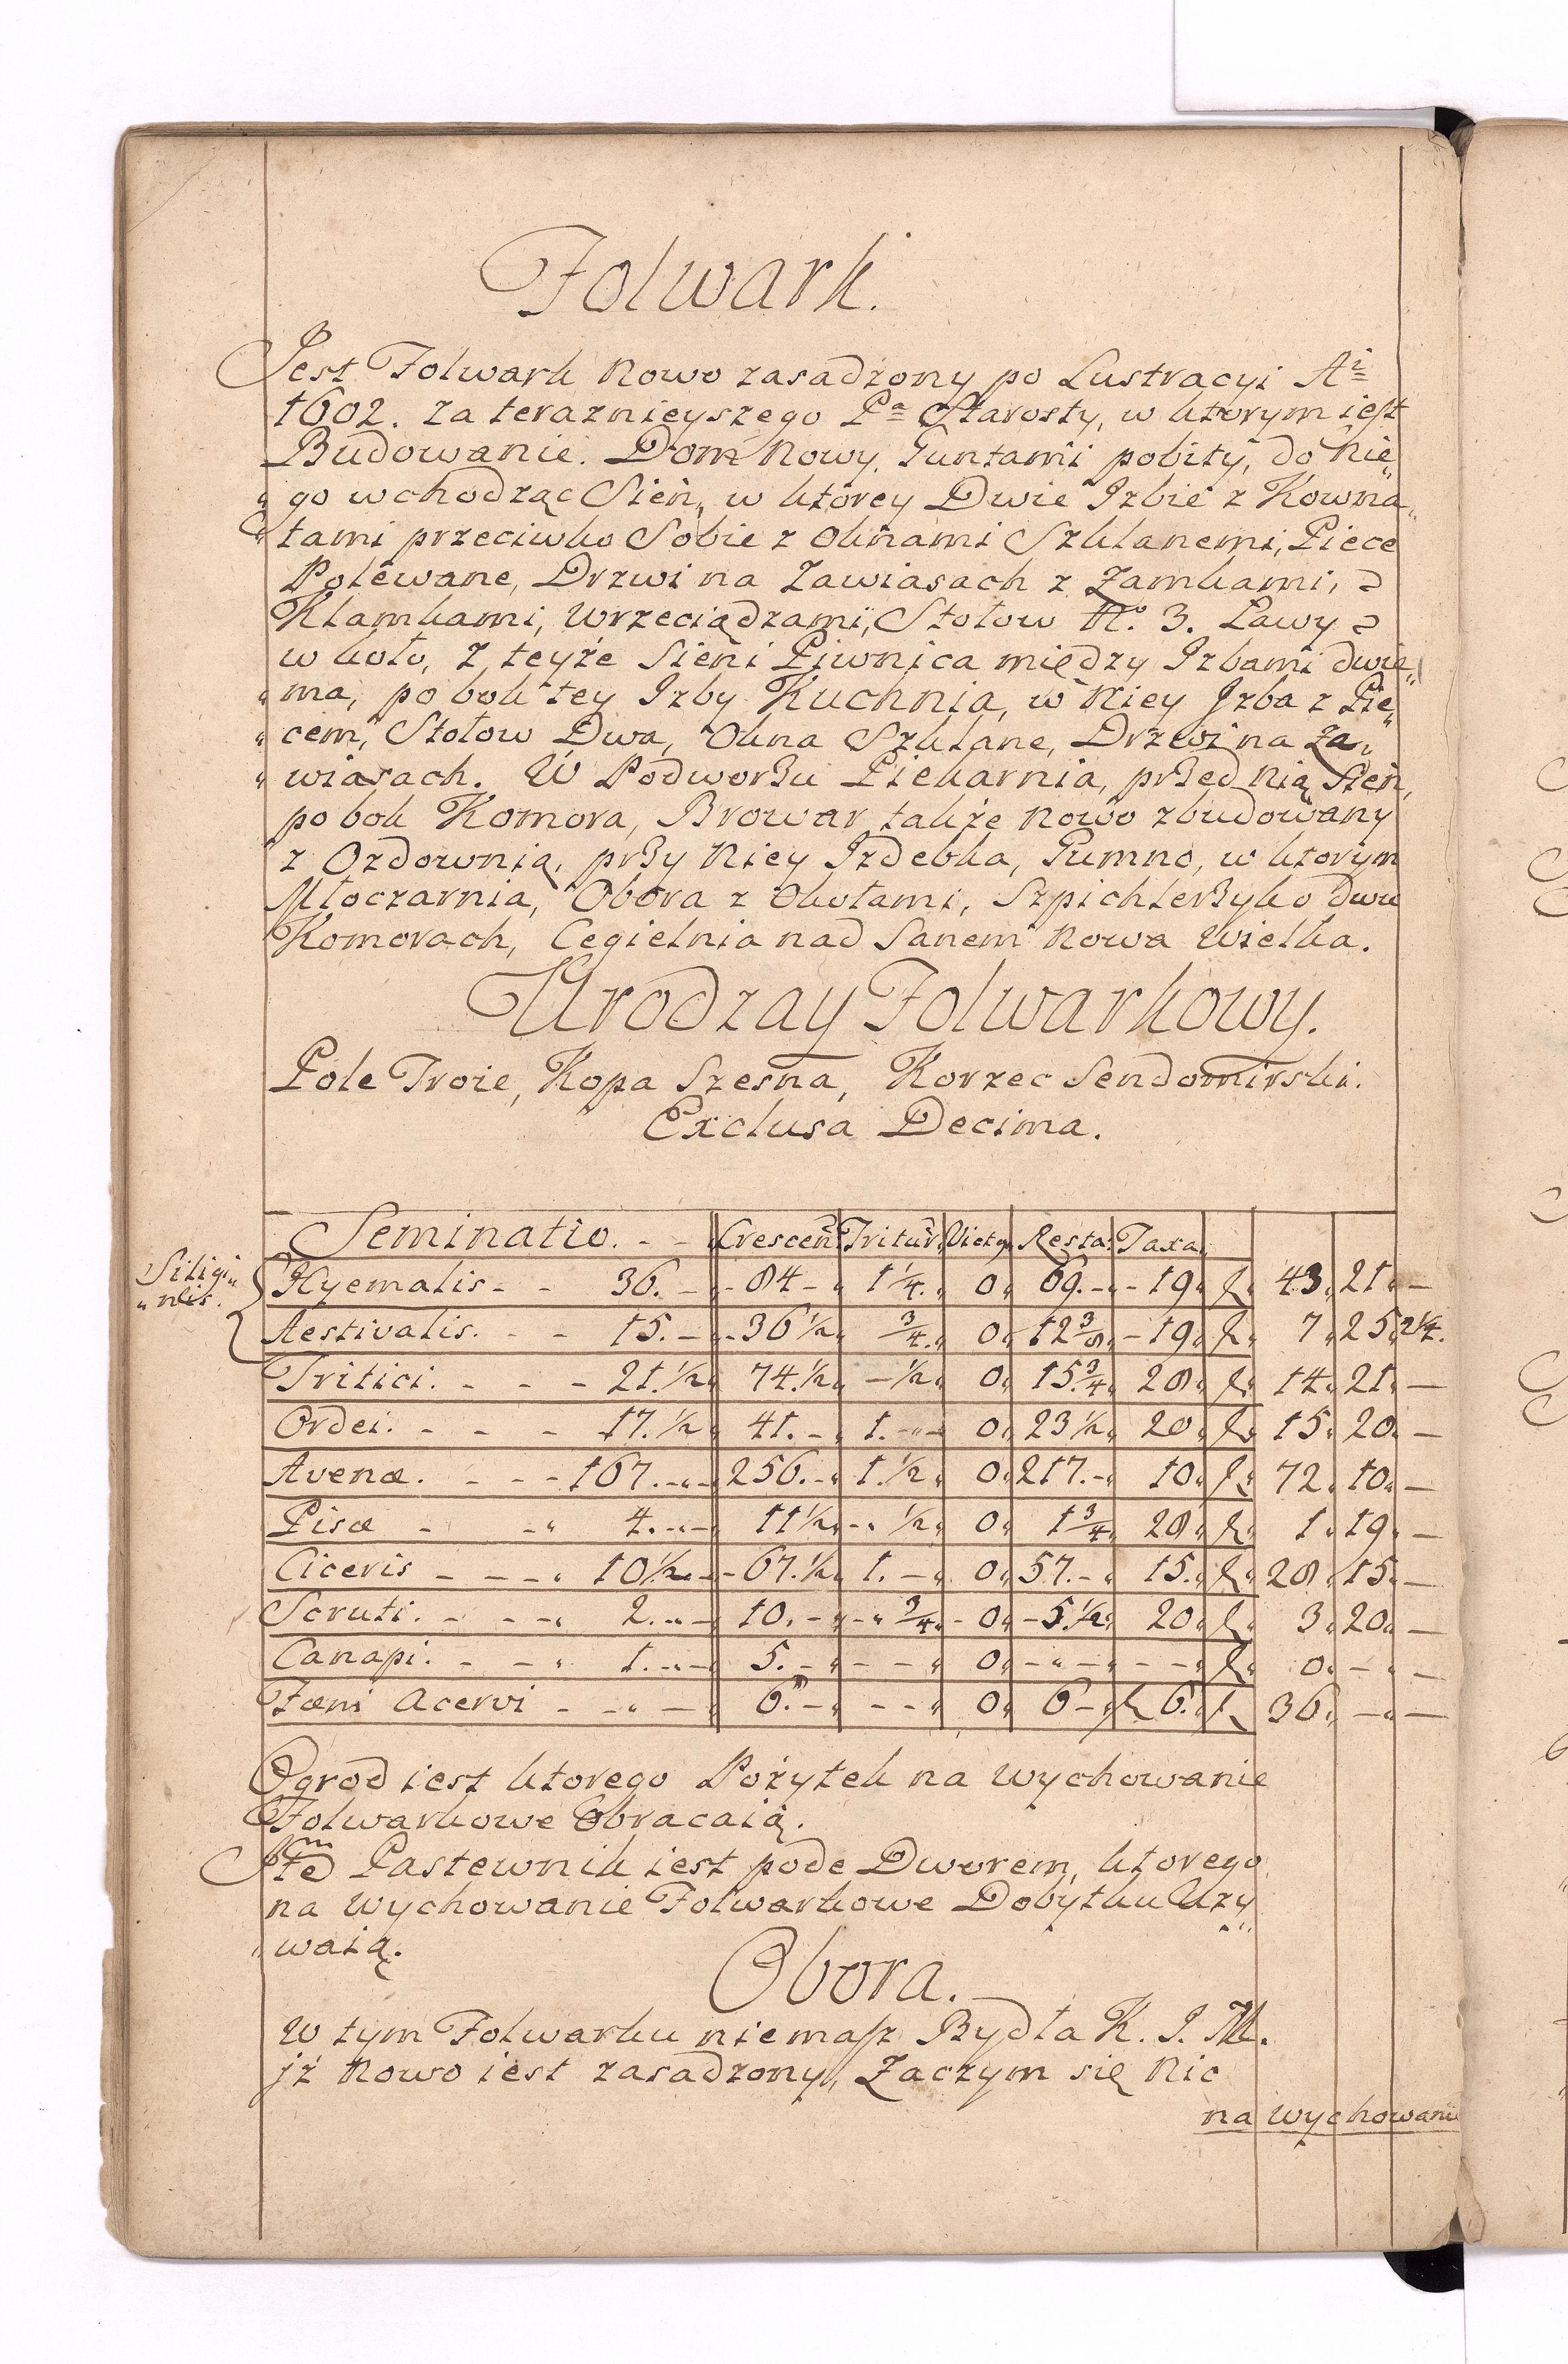 Folwark.
Jest Folwark nowo zasadzony po Lustracyi Ai
1602. za teraznieyszego Pa Starosty, w ktorym iest
Budowanie. Dom nowy, Guntami pobity, do nie„
„go wchodząc Sień, w ktorey Dwie Izbie z Kowna„
„tami przeciwko Sobie z Oknami Szklanemi, Piece
Polewane, Drzwi na Zawiasach z Zamkami,
Klamkami, Wrzeciądzami, Stołow No. 3. Ławy
w koło, z teyże Sieni Piwnica między Izbami dwie„
„ma, po bok tey Izby Kuchnia, w niey Izba z Pie„
„cem, Stołow Dwa, Okna Szklane, Drzwi na Za„
„wiasach. W Podworzu Piekarnia, przed nią Sień,
po bok Komora, Browar także nowo zbudowany
z Ozdownią, przy niey Izdebka, Gumno, w ktorym
Młoczarnia, Obora z Okołami, Szpichlerzyk o dwu
Komorach, Cegielnia nad Sanem nowa wielka.
Urodzay Folwarkowy.
Pole Troie, Kopa Szesna, Korzec Sendomirski.
Exclusa Decima.
Seminatio. - - Crescen Tritur Victu Resta Taxa
Siligi„
„nis.
Hyemalis - - 36. - 84 - 1 1/4. 0 69. - 19 f. 43 21 -
Aestivalis. - - 15. - 36 1/2 3/4. 0 12 3/8 - 19 f. 7 25 2 1/4.
Tritici. - - - 21. 1/2 74. 1/2 - 1/2 0 15. 3/4 28 f. 14 21 -
Ordei. - - - 17. 1/2 41. - 1. - 0 23 1/2 20 f. 15 20 -
Avenæ. - - - 167. - 256. - 1. 1/2 0 217. - 10 f. 72 10 -
Pisæ - - 4. - 11 1/2 - 1/2 0 1 3/4 28 f. 1 19 -
Ciceris - - - 10 1/2 - 67. 1/2 1. - 0 57. - 15. f. 28 15 -
Scruti. - - - 2. - 10. - - 3/4 - 0 - 5. 1/2 20 f. 3 20 -
Canapi. - - 1. - 5. - - - 0 - - - - f. 0 - -
Fæni Acervi - - - 6. - - - 0 6 - f. 6. f. 36 - -
Ogrod iest ktorego Pożytek na wychowanie
Folwarkowe Obracaią.
Item Pastewnik iest pode Dworem, ktorego
na wychowanie Folwarkowe Dobytku Uzy„
„waią.
Obora.
W tym Folwarku niemasz Bydła K. J. M.
jż nowo iest zasadzony, Zaczym się nic
na wychowanie